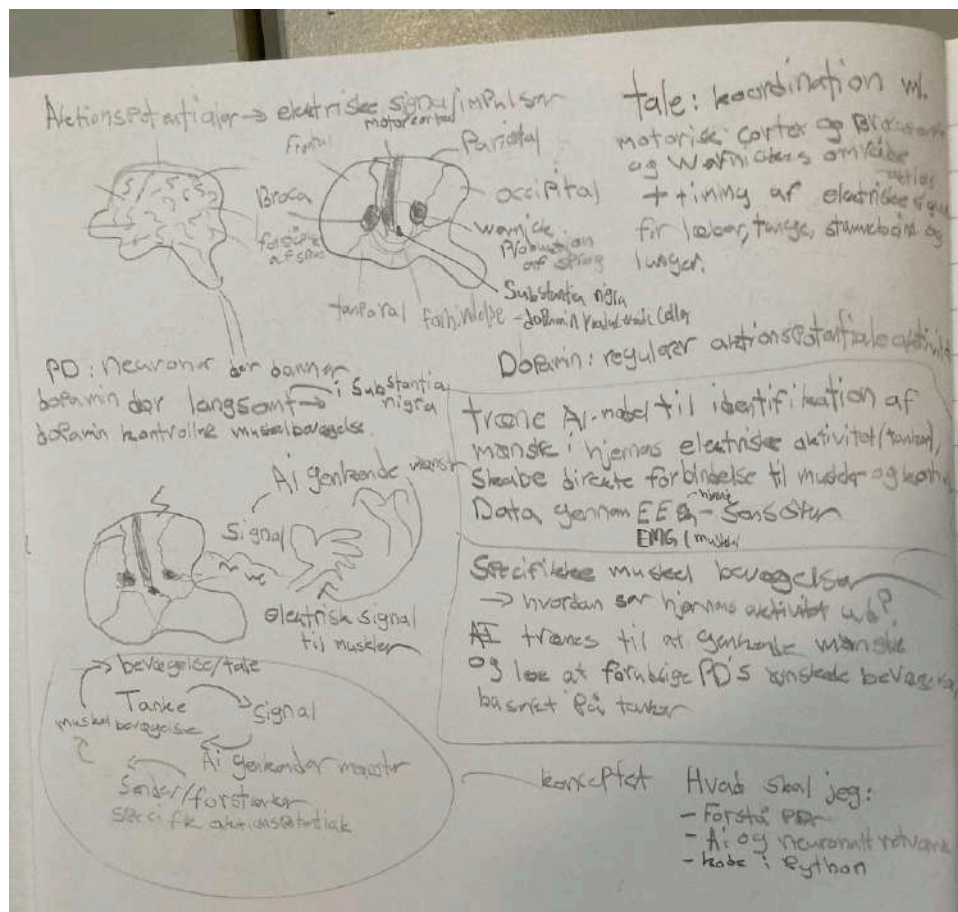 Aktionspotentialer → elektriske signal/impulser
motorcortex
Frontal
Parietal
Broca
occipital
forståelse af sprog
Wernicke
Produktion
af sprog
Substantia nigra
temporal
forbindelse
-dopamin producerende celler
tale: koordination ml.
motorisk cortex og Brocas
og Wernickes område
+ timing af elektriske
for læber, tunge, stemmebånd og
lunger.
Dopamin: regulerer aktionspotentiale aktivitet
PD: neuroner der danner
dopamin dør langsomt → i Substantia
nigra
dopamin kontrollere muskelbevægelse
træne AI-model til identifikation af
mønstre i hjernens elektriske aktivitet (tanker),
skabe direkte forbindelse til
Data gennem EEG - Sensorer
hjerne
EMG (muskel
Ai genkende mønstre
Signal
elektrisk signal
til muskler
Specifikke muskel bevægelser
→ hvordan ser hjernens aktivitet ud?
AI trænes til at genkende mønstre
og lære at forudsige PD's ønskede bevægelser
basret på tanker
→ bevægelse/tale
Tanke
Signal
muskelbevægelse
Ai genkender mønster
Sender/forstærker
specifik aktionspotentiale
konceptet
Hvad skal jeg:
- Forstå PD
- Ai og neuralt netværk
- kode i Python